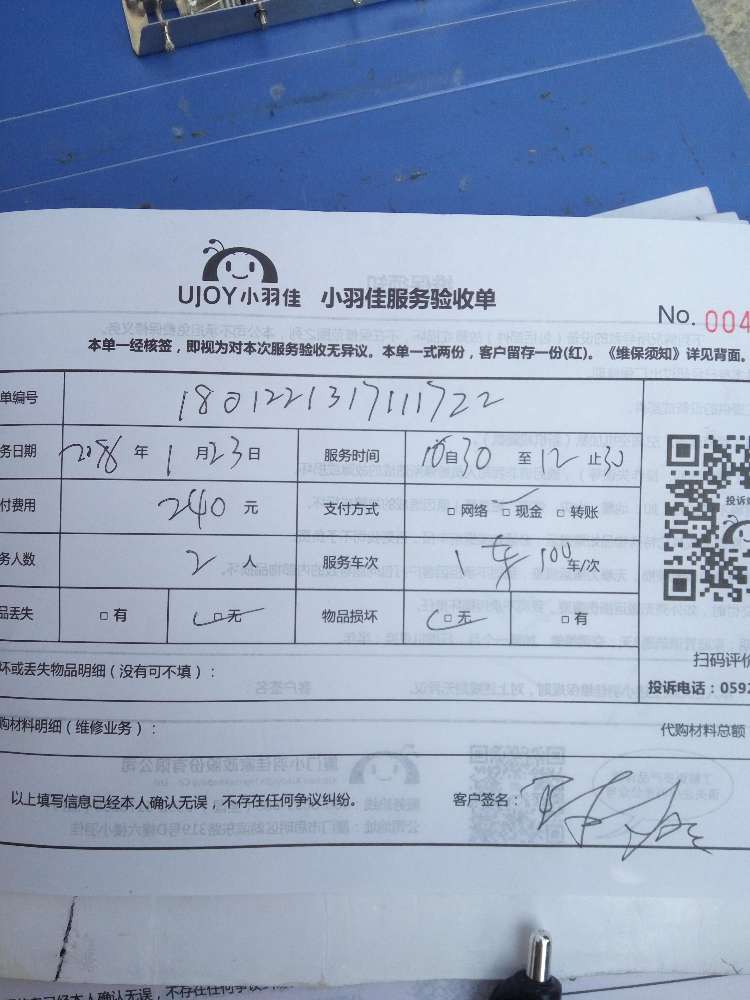 UJOY小羽佳 小羽佳服务验收单
No. 004
本单一经核签，即视为对本次服务验收无异议。本单一式两份，客户留存一份(红)。《维保须知》详见背面。
单编号 1801221317111722
务日期 2018 年 1 月 23 日 服务时间 10 自 30 至 12 止 30
付费用 240 元 支付方式 □ 网络 □ 现金 □ 转账
务人数 2 人 服务车次 1车 100 车/次
品丢失 □ 有 □ 无 物品损坏 □ 无 □ 有
扫码评价
坏或丢失物品明细（没有可不填）：
投诉电话：0592
购材料明细（维修业务）： 代购材料总额
以上填写信息已经本人确认无误，不存在任何争议纠纷。 客户签名：